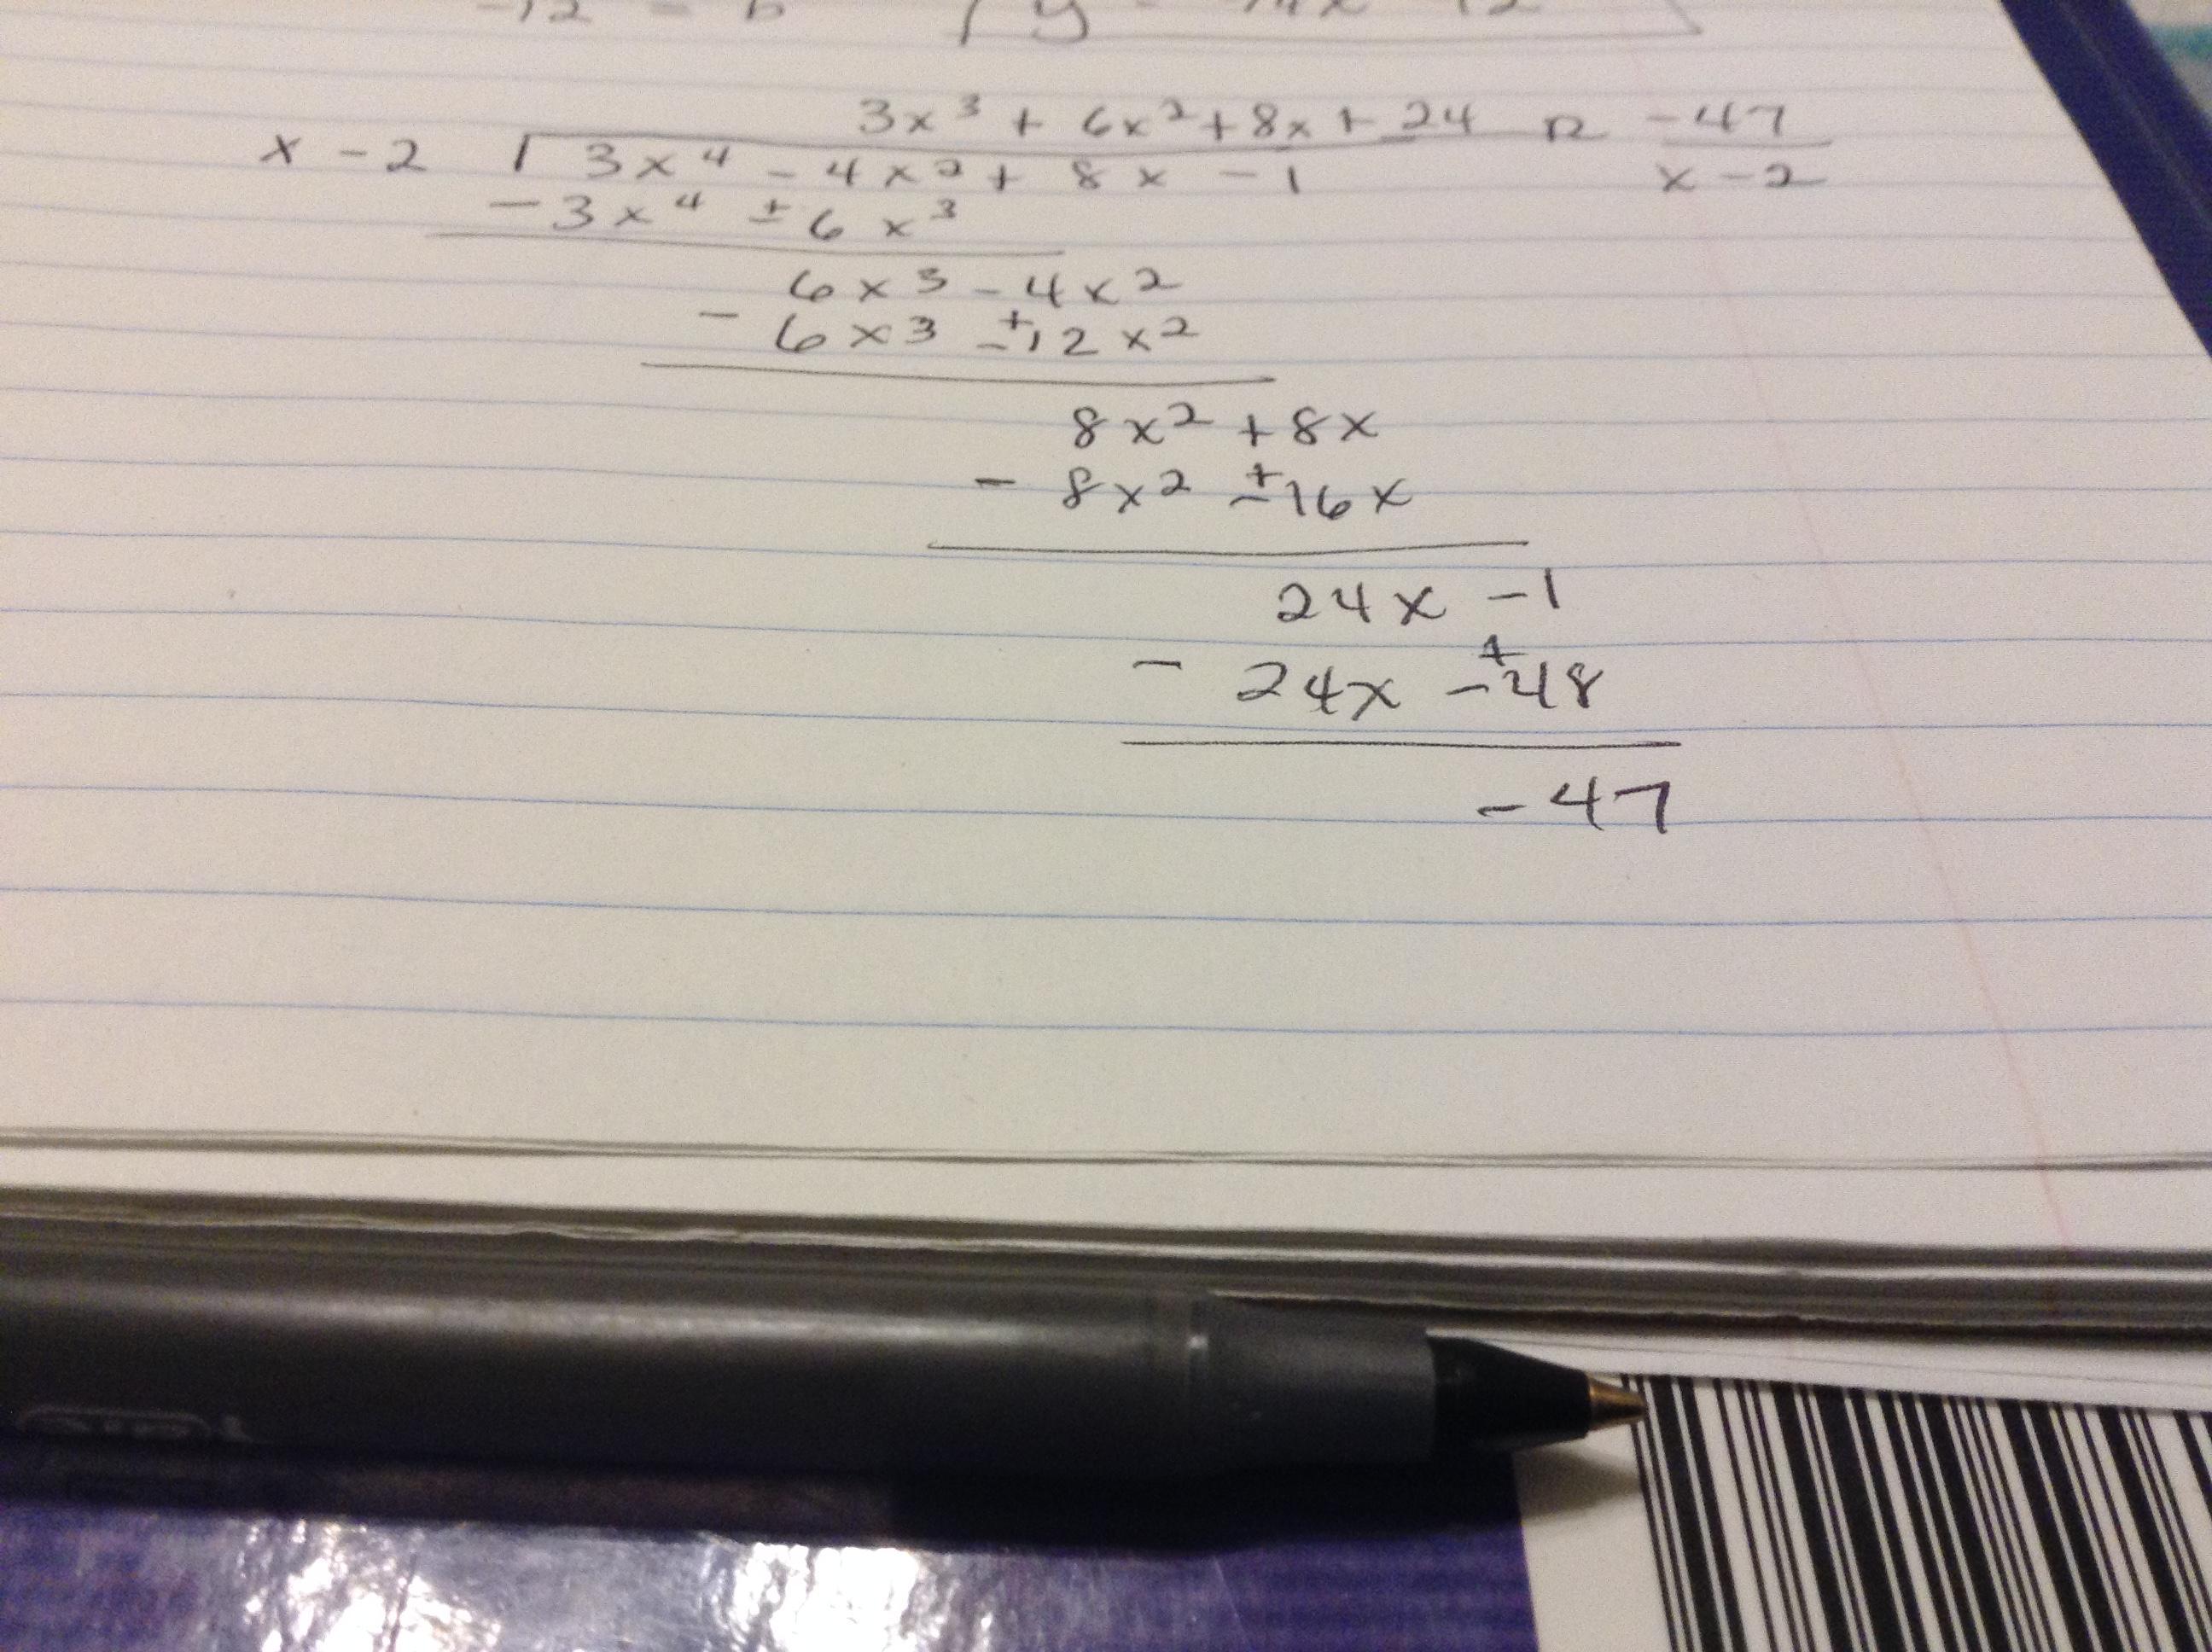 -12 = b y = -14x -12
3x³ + 6x² + 8x + 24 R -47
x - 2 √ 3x⁴ - 4x² + 8x - 1 x - 2
- 3x⁴ ± 6x³
6x³ - 4x²
- 6x³ ± 12x²
8x² + 8x
- 8x² ± 16x
24x - 1
- 24x ± 48
- 47